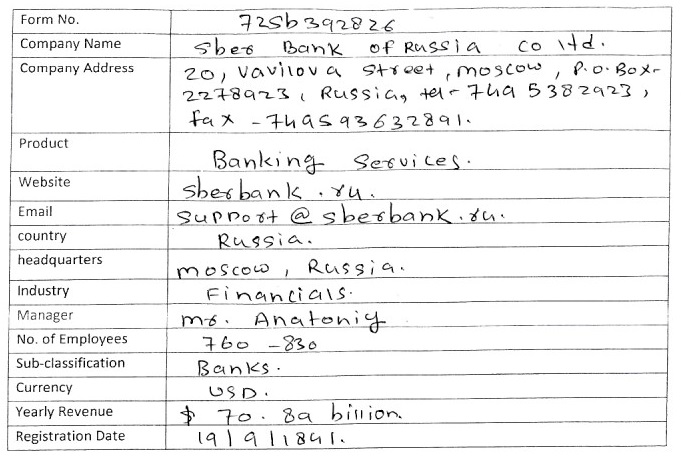 Form No. 725b392826
Company Name sber Bank of Russia co ltd.
Company Address 20, vavilova street, moscow, P.O.Box-
2278923, Russia, tel- 7495382923,
fax - 74959363 2891.
Product Banking Services.
Website sberbank.ru.
Email support@sberbank.ru.
country Russia.
headquarters moscow, Russia.
Industry Financials.
Manager mr. Anatoniy
No. of Employees 760 - 830
Sub-classification Banks.
Currency USD.
Yearly Revenue $ 70.89 billion.
Registration Date 19/9/1841.